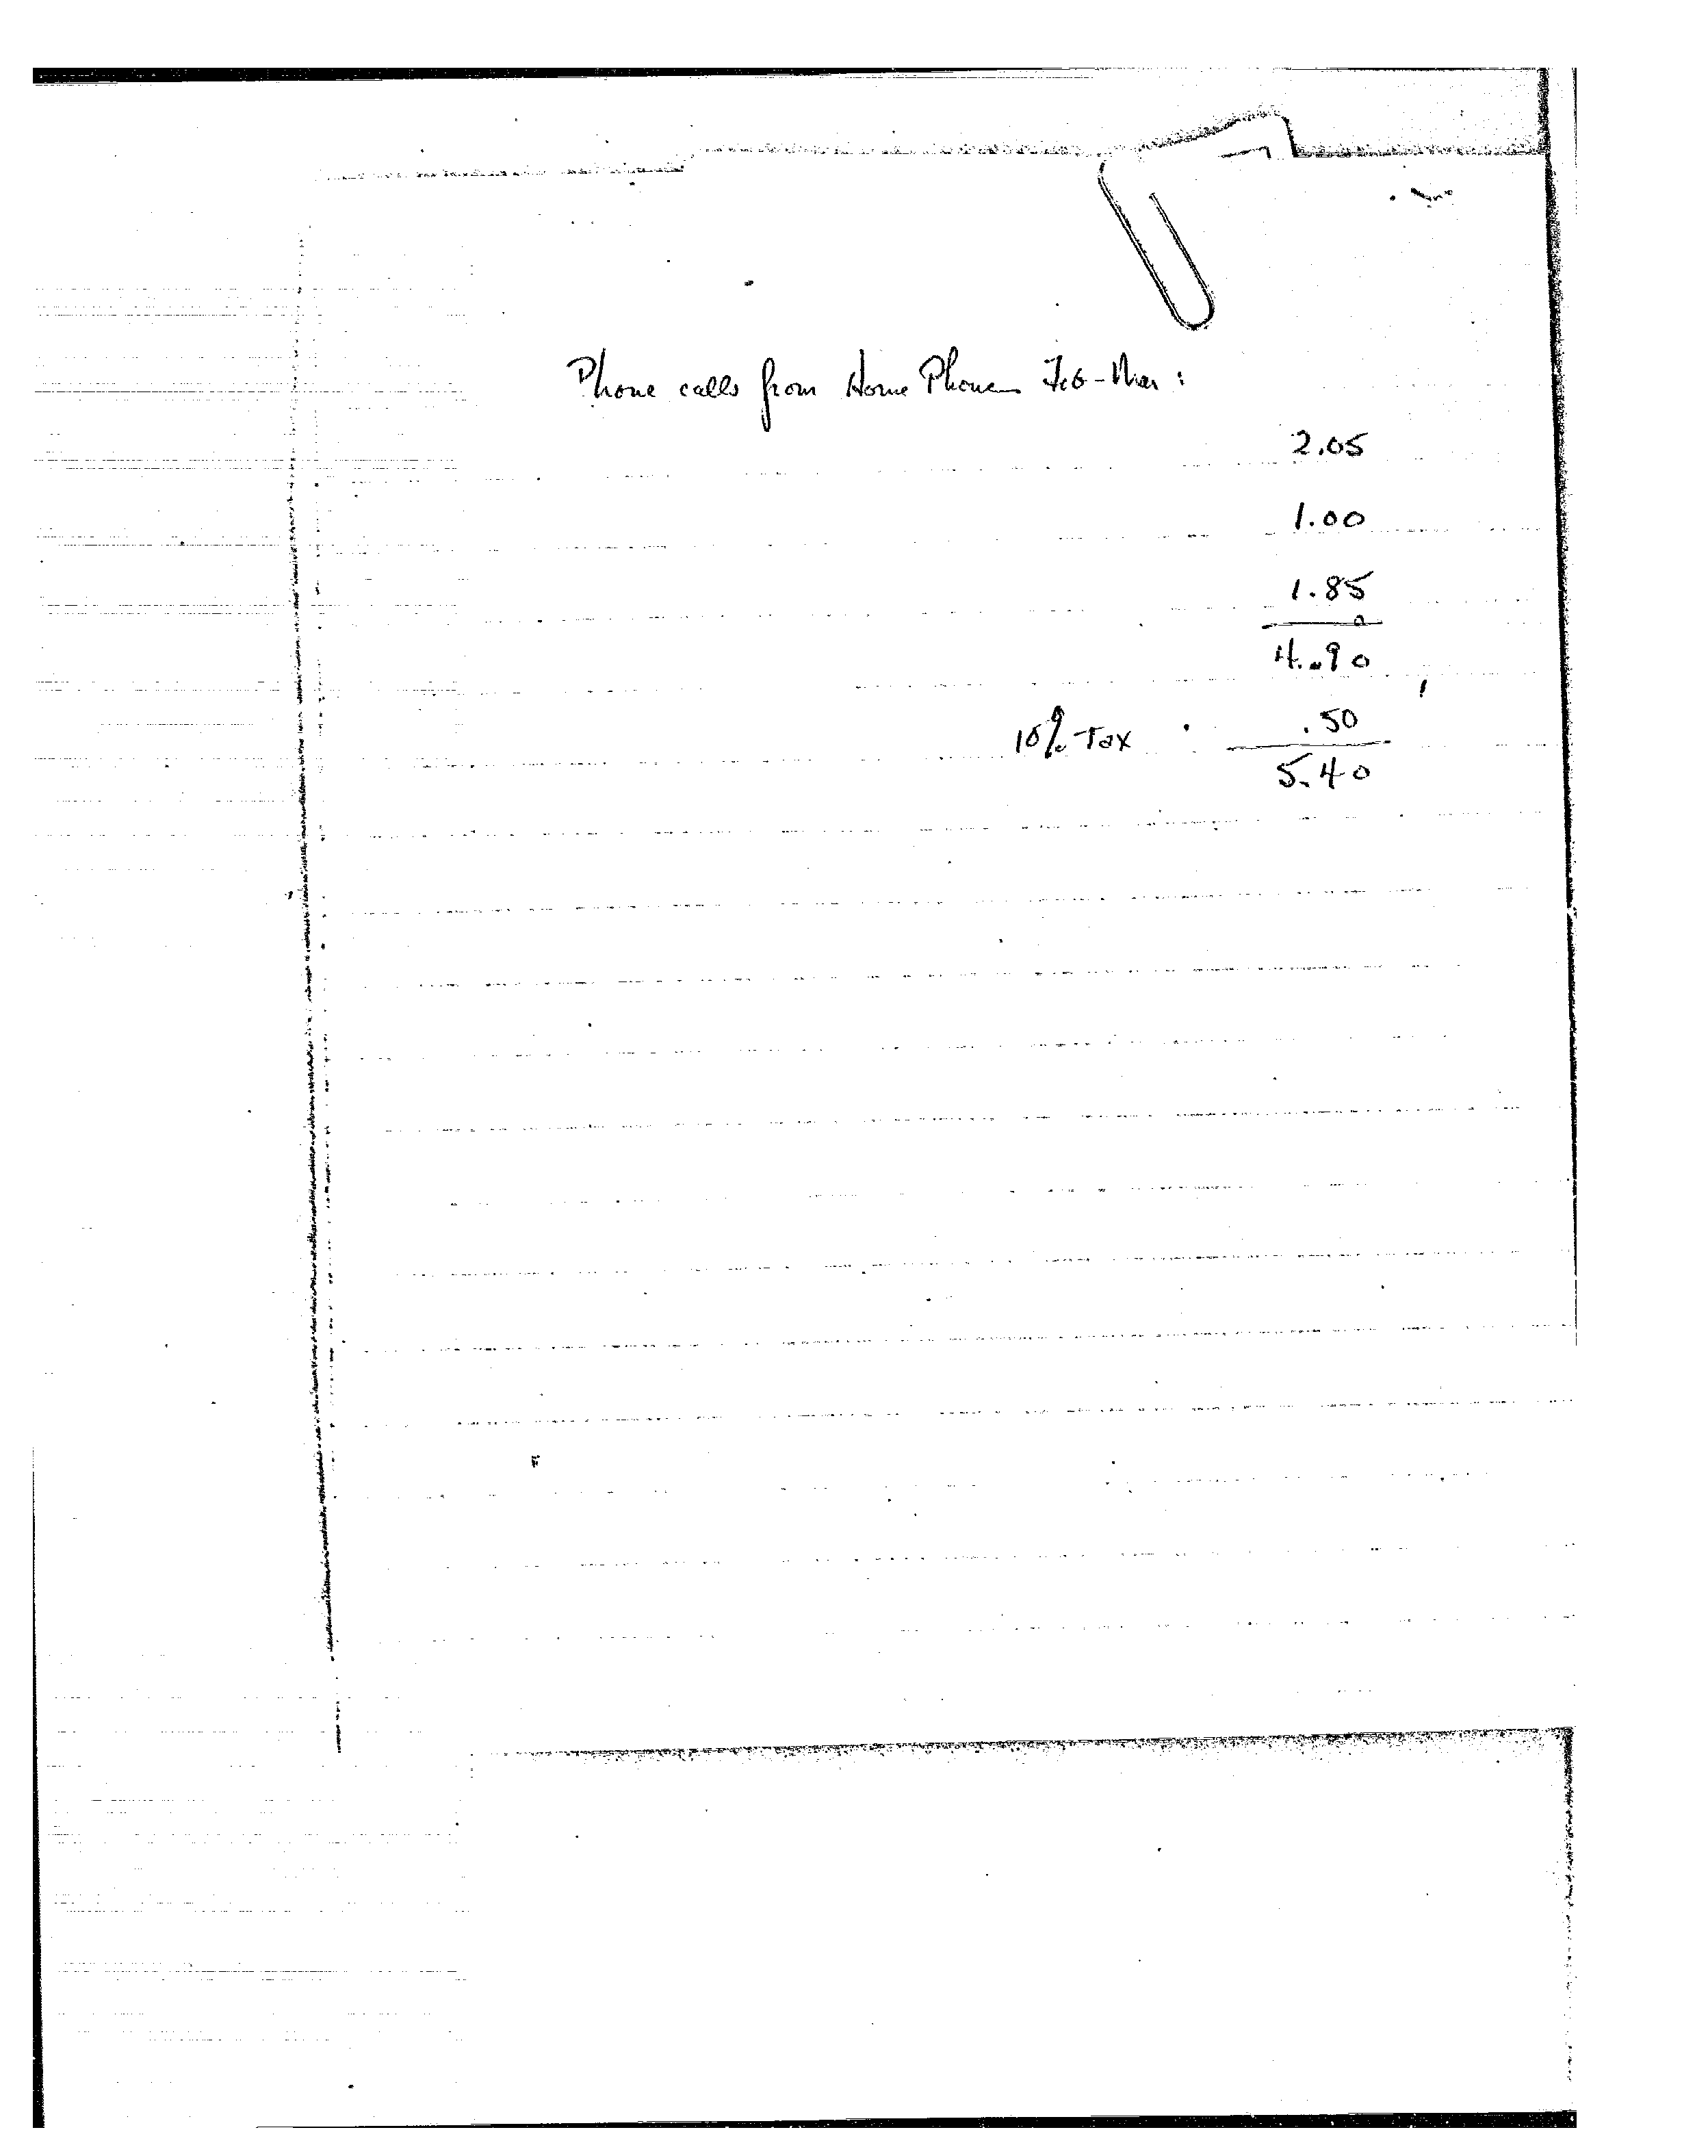 Phone calls from Home Phone Feb-Mar:
2.05
1.00
1.85
4.90
10% Tax .50
5.40